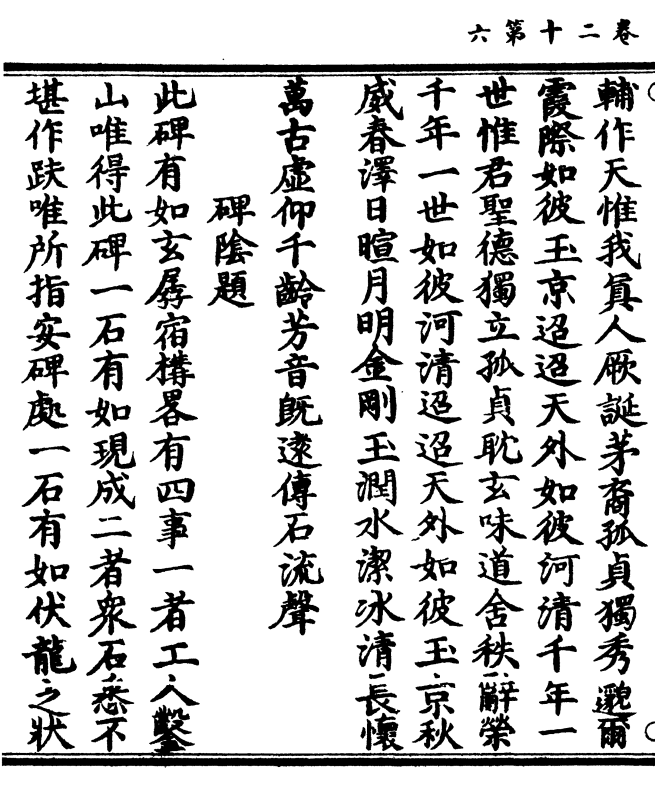 卷二十第六
輔作天惟我真人厥誕茅裔孤貞獨秀邈爾
霞際如彼玉京迢迢天外如彼河清千年一
世惟君聖德獨立孤貞耽玄味道舍秩辭榮
千年一世如彼河清迢迢天外如彼玉京秋
威春澤日暄月明金剛玉潤水潔冰清長懷
萬古虛仰千齡芳音旣逺傳石流聲
碑陰題
此碑有如玄孱宿搆畧有四事一者工人鑿
山唯得此碑一石有如現成二者衆石悉不
堪作趺唯所指安碑處一石有如伏龍之狀